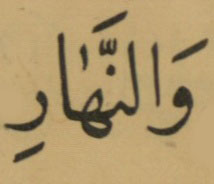 وَالنَّهَارِ